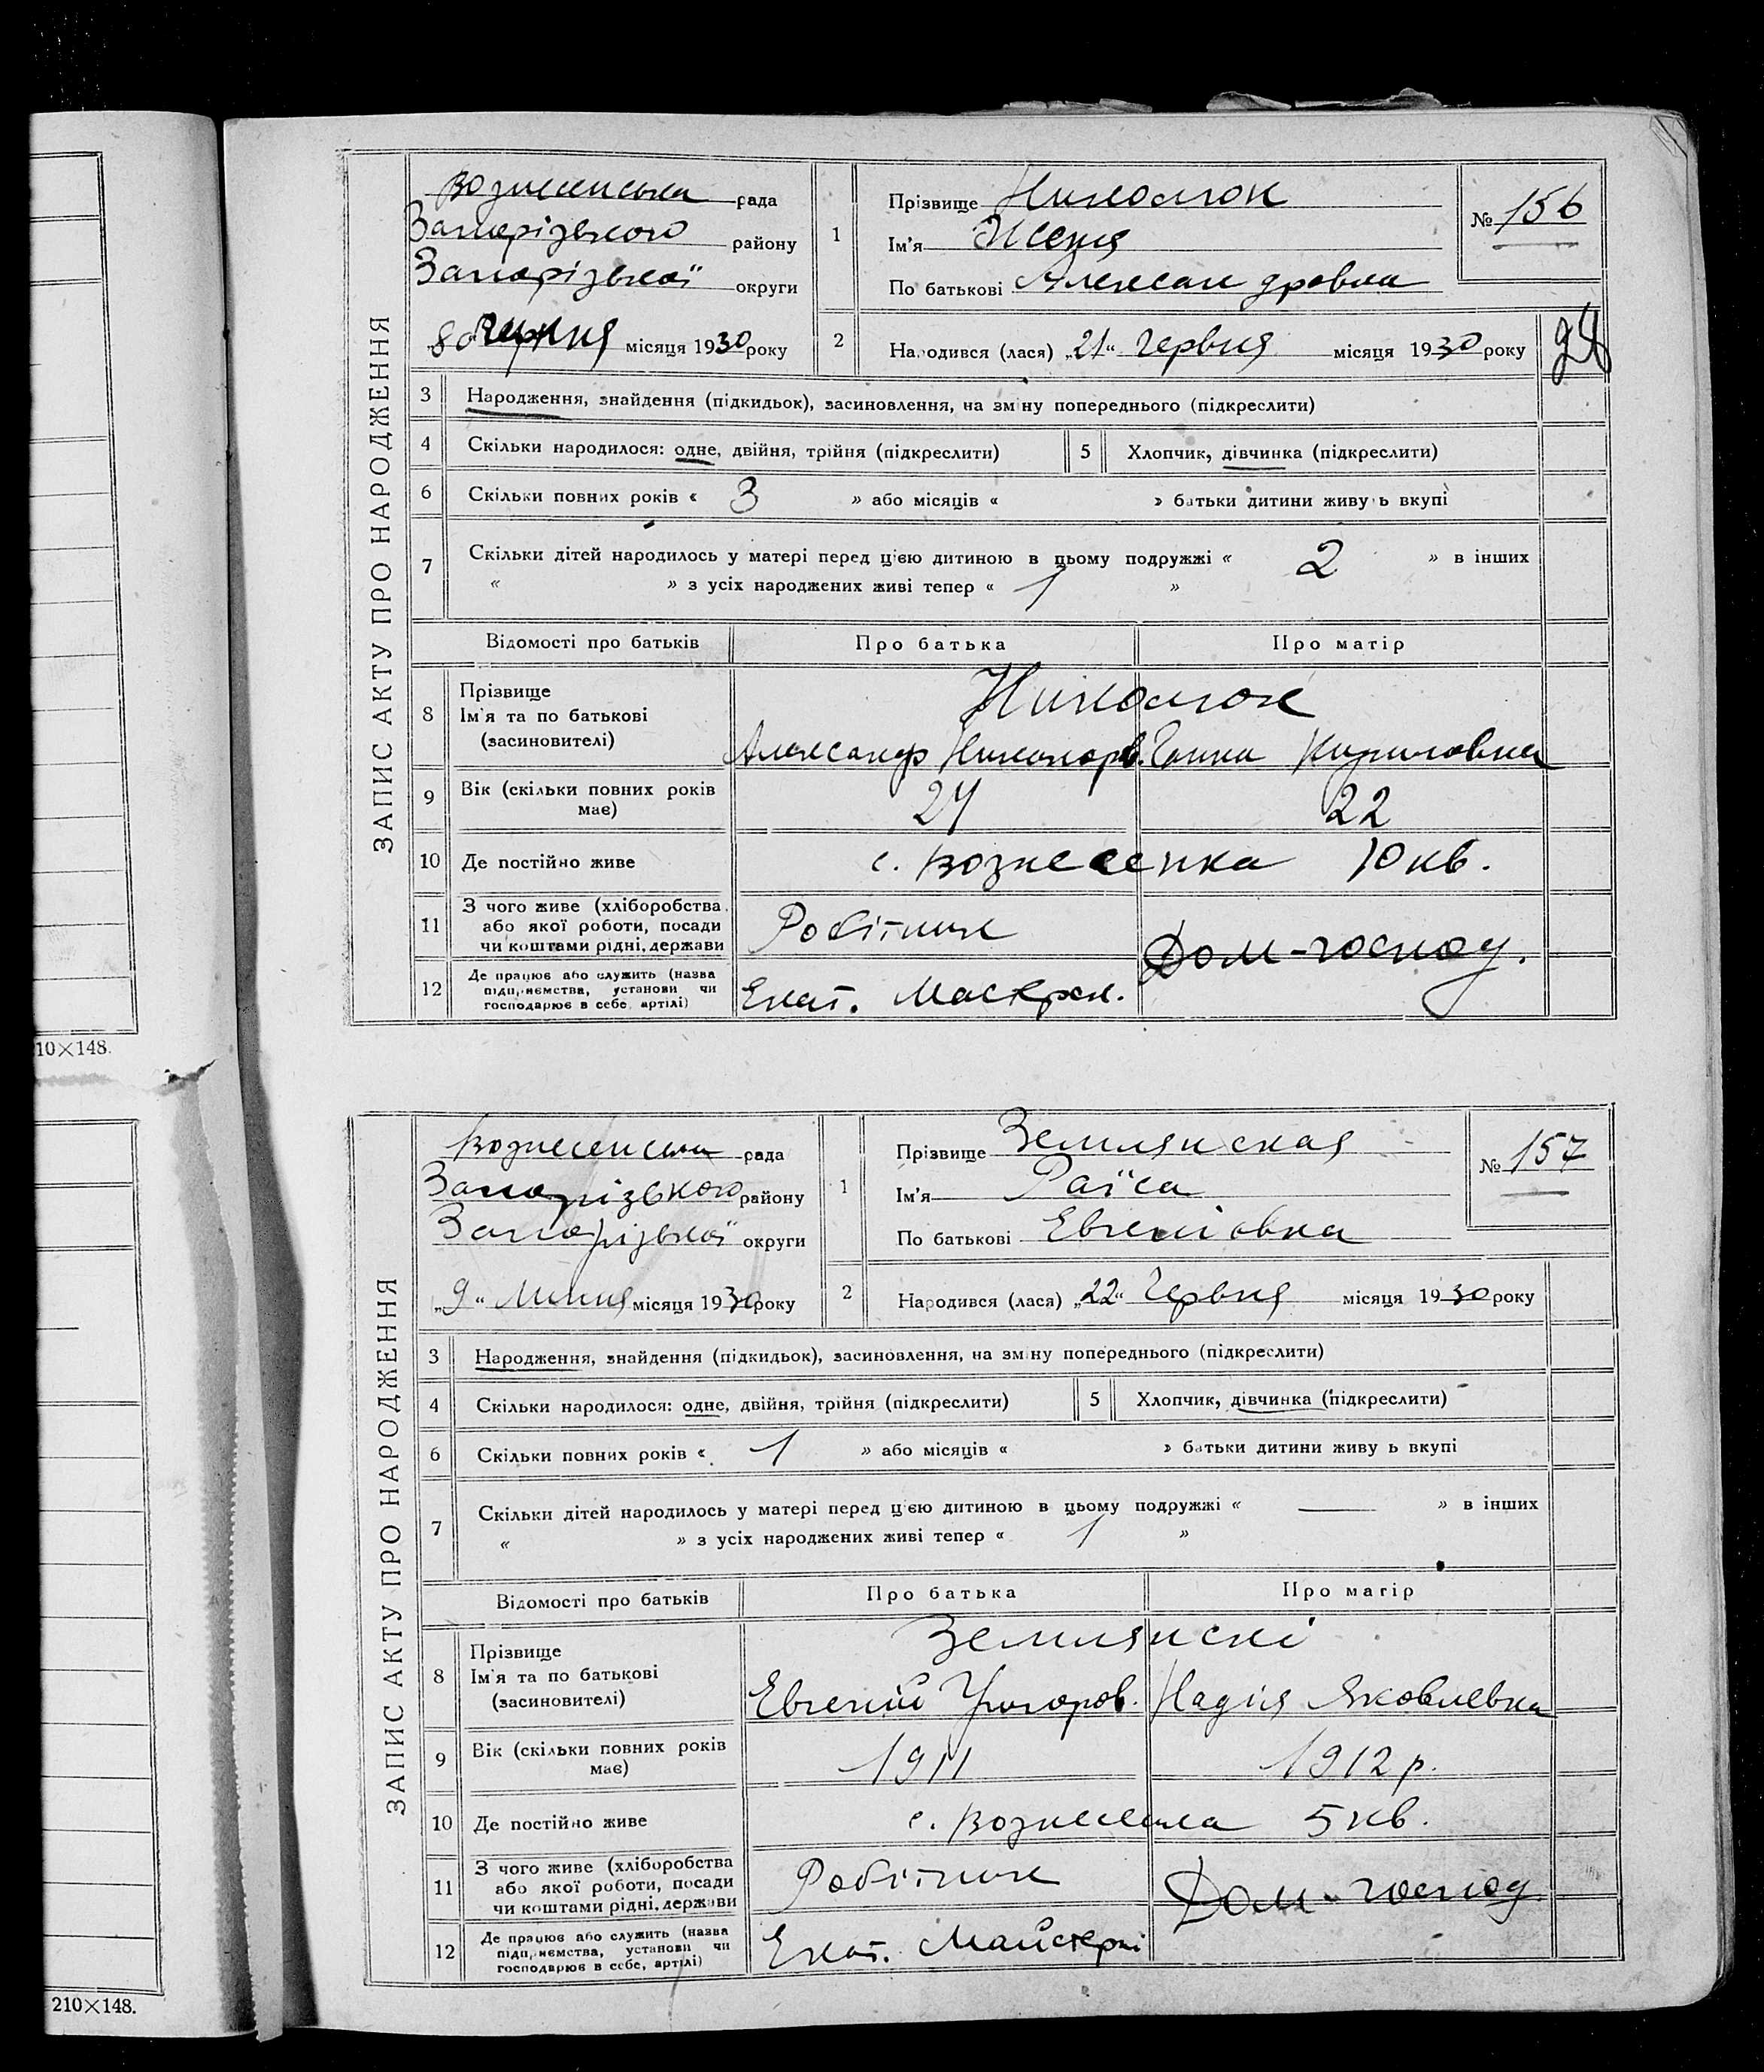 ЗАПИС АКТУ ПРО НАРОДЖЕННЯ
Вознесенська рада
Запорізького району
Запорізької округи
місяця 1930 року
1
Прізвище
Ім'я Женя
По батькові Александровна
№ 156
2
Народився (лася) „21“ Червня місяця 1930 року
3 Народження, знайдення (підкидьок), засиновлення, на зміну попереднього (підкреслити)
4 Скільки народилося: одне, двійня, трійня (підкреслити)
5 Хлопчик, дівчинка (підкреслити)
6 Скільки повних років « 3 » або місяців « » батьки дитини живуть вкупі
7 Скільки дітей народилось у матері перед цією дитиною в цьому подружжі « 2 » в інших
« » з усіх народжених живі тепер « 1 »
Відомості про батьків Про батька Про матір
8 Прізвище
Ім'я та по батькові
(засиновителі)
Александр Никоноров. Ганна Кириловна
9 Вік (скільки повних років
має)
24 22
10 Де постійно живе с. Вознесенка 10 кв.
11 З чого живе (хліборобства,
або якої роботи, посади
чи коштами рідні, держави
Робітник Дом-господ.
12 Де працює або служить (назва
підприємства, установи чи
господарює в себе, артілі)
Екат. Мастерск.
10×148.
ЗАПИС АКТУ ПРО НАРОДЖЕННЯ
Вознесенська рада
Запорізького району
Запорізької округи
„9“ Липня місяця 1930 року
1
Прізвище Землянская
Ім'я Раїса
По батькові Евгенiовна
№ 157
2
Народився (лася) „22“ Червня місяця 1930 року
3 Народження, знайдення (підкидьок), засиновлення, на зміну попереднього (підкреслити)
4 Скільки народилося: одне, двійня, трійня (підкреслити)
5 Хлопчик, дівчинка (підкреслити)
6 Скільки повних років « 1 » або місяців « » батьки дитини живуть вкупі
7 Скільки дітей народилось у матері перед цією дитиною в цьому подружжі « — » в інших
« » з усіх народжених живі тепер « 1 »
Відомості про батьків Про батька Про матір
8 Прізвище
Ім'я та по батькові
(засиновителі)
Землянскі
Евгеній Григоров. Надія Яковлевна
9 Вік (скільки повних років
має)
1911 1912 р.
10 Де постійно живе с. Вознесенка 5 кв.
11 З чого живе (хліборобства
або якої роботи, посади
чи коштами рідні, держави
Робітник Дом-господ
12 Де працює або служить (назва
підприємства, установи чи
господарює в себе, артілі)
Екат. Майстерні
210×148.